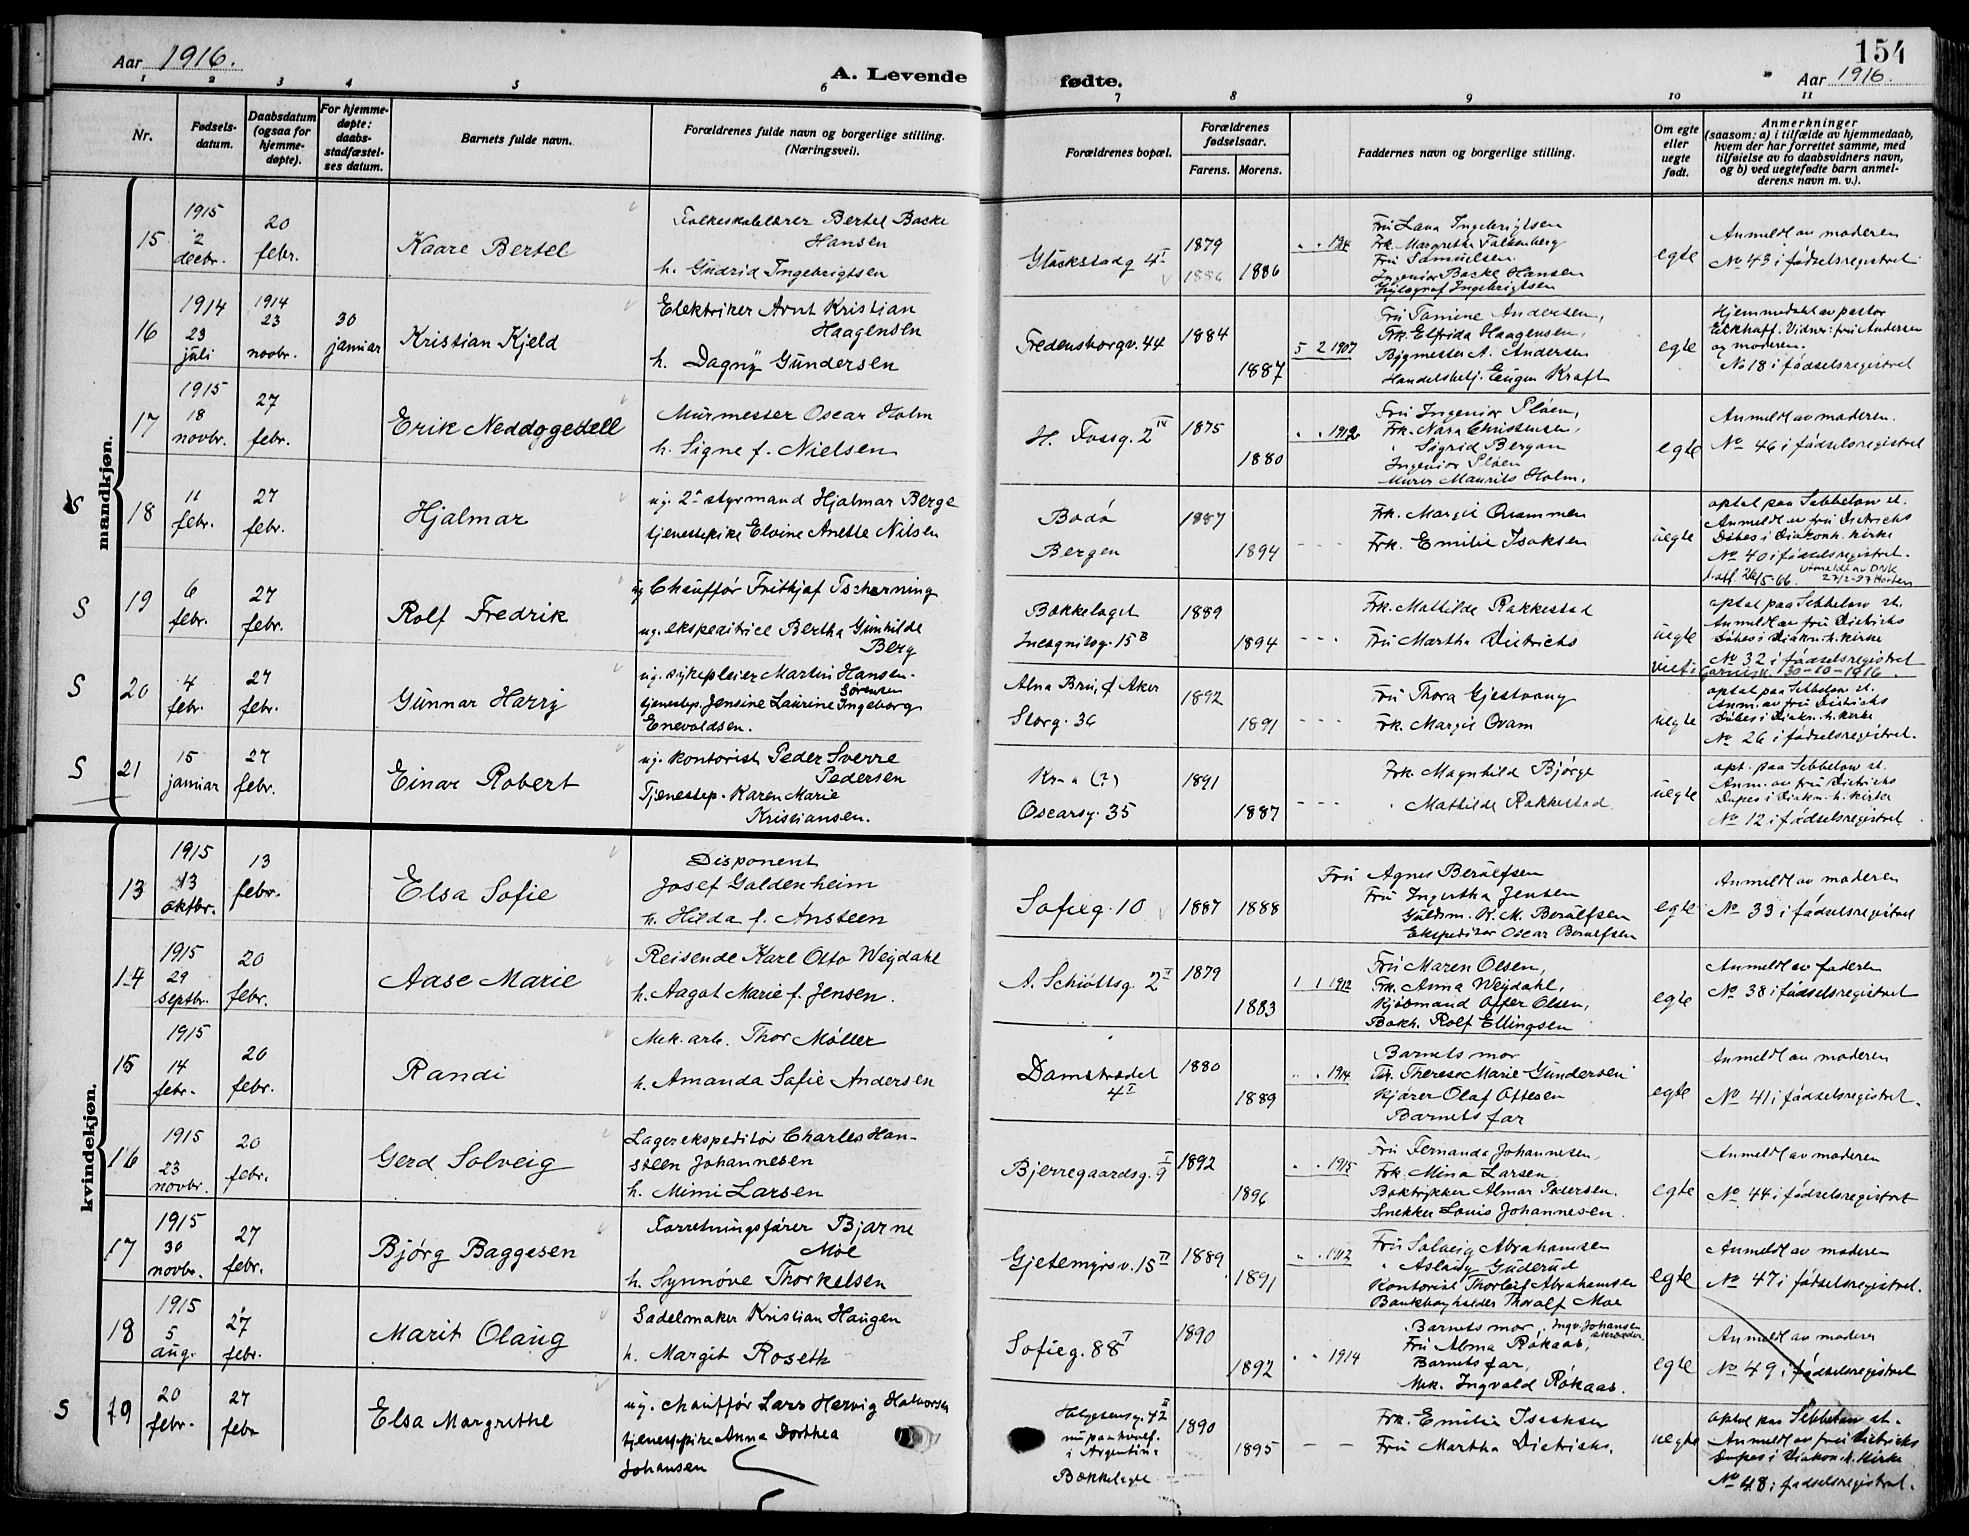 Aar 1916.
A. Levende
fødte.
154
Aar 1916.
1 2 3 4 5 6 7 8 9 10 11
Nr.
Fødsels-
datum.
Daabsdatum
(ogsaa for
hjemme-
døpte).
For hjemme-
døpte:
daabs-
stadfæstel-
ses datum.
Barnets fulde navn.
Forældrenes fulde navn og borgerlige stilling.
(Næringsvei).
Forældrenes bopæl.
Forældrenes
fødselsaar.
Farens. Morens.
Faddernes navn og borgerlige stilling.
Om egte
eller
uegte
født.
Anmerkninger
(saasom: a) i tilfælde av hjemmedaab,
hvem der har forrettet samme, med
tilføielse av to daabsvidners navn,
og b) ved uegtefødte barn anmel-
derens navn m. v.).
mandkjøn.
15
1915
2
decbr.
20
febr.
Kaare Bertel
Folkeskolelærer Bertel Backe
Hansen
h. Gudrid Ingebrigtsen
Glückstadg 4 I
1879
1886
1886
Frk. Margrethe Falkenberg
Fru Samuelsen.
Ingeniør Backe Hansen
egte
Anmeldt av moderen
No 43 i fødselsregistret
16
1914
23
juli
1914
23
novbr.
30
januar
Kristian Kjeld
Elektriker Arnt Kristian
Haagensen
h. Dagny Gundersen
Fredensborgv. 44
1884
1887
5 2 1907
Frk. Elfrida Haagensen,
Bygmester A. Andersen
Handelsbetj. Eugen Kraft
egte
Hjemmedøbt av pastor
Eckhoff. Vidner: fru Andersen
og moderen.
No 18 i fødselsregistret
17
1915
18
novbr.
27
febr.
Erik Neddogettell
Murmester Oscar Holm
h. Signe f. Nielsen
H. Fossg. 2 IV
1875
1880
" " 1912
Fru Ingeniør Pløen,
Frk. Nora Christensen,
" Sigrid Bergan
Ingeniør Pløen
Murer Maurits Holm.
egte
Anmeldt av moderen.
No 46 i fødselsregistret
S
18
11
febr.
27
febr.
Hjalmar
ug. 2n styrmand Hjalmar Berge
tjenestepike Elvine Anette Nilsen
Bodø
Bergen
1887
1894
- - -
Frk. Margit Qvammen
Frk. Emilie Isaksen
uegte
optat paa Sebbelow st.
Anmeldt av fru Dietrichs
Døbes i Diakonh. kirke
No 40 i fødselsregistret.
S
19
6
febr.
27
febr.
Rolf Fredrik
ug Chauffør Frithjof Tscherning
ug. ekspeditrice Bertha Gunhilde
Berg
Bækkelaget
Incognitog. 15 B
1889
1894
- - -
Frk. Mathilde Rakkestad
Fru Martha Dietrichs
uegte
optat paa Sebbelow st.
Anmeldt av fru Dietrichs
Døbes i Diakn. h. kirke
No 32 i fødselsregistret
30-10-1916.
S
20
4
febr.
27
febr.
Gunnar Harry
ug. sykepleier Martin Hansen-
Sørensen
tjenestep. Jensine Laurine Ingeborg
Enevoldsen.
Alna Bru, Ø Aker
Storg. 36
1892
1891
Fru Thora Gjestvang
Frk. Margit Qvam
uegte
optat paa Sebbelow st.
Anm. av fru Dietrichs
Døbes i Diakn. h. kirke
No 26 i fødselsregistret.
S
21
15
januar
27
febr.
Einar Robert
ug. kontorist Peder Sverre
Pedersen
Tjenestep. Karen Marie
Kristiansen.
Kr-a (?)
Oscarsg. 35
1891
1887
- - -
Frk. Magnhild Bjørge
" Mathilde Rakkestad
uegte
opt. paa Sebbelow st.
Anm. av fru Dietrichs
Døpes i Diakn. h. kirke
No 12 i fødselsregistret
kvindekjøn.
13
1915
13
oktbr.
13
febr.
Elsa Sofie
Disponent
Josef Goldenheim
h. Hilda f. Ansteen
Sofieg. 10
1887
1888
Fru Agnes Berulfsen
Fru Ingertha Jensen
Guldsm. K. M. Berulfsen
Ekspeditør Oscar Berulfsen
egte
Anmeldt av moderen
No 33 i fødselsregistret
14
1915
29
septbr.
20
febr.
Aase Marie
Reisende Karl Otto Weydahl
h. Aagot Marie f. Jensen.
A. Schiøttsg. 2 II
1879
1883
1 1 1912
Fru Maren Olsen,
Frk. Anna Weydahl,
Kjøbmand Otter Olsen,
Bokh. Rolf Ellingsen
egte
Anmeldt av faderen
No 38 i fødselsregistret
15
1915
14
febr.
20
febr.
Randi
Mek. arb. Thor Møller
h. Amanda Sofie Andersen
Damstrædet
4 I
1880
1889
" " 1914
Barnets mor
Fr. Therese Marie Gundersen
Kjører Olaf Ottesen
Barnets far
egte
Anmeldt av moderen
No 41 i fødselsregistret.
16
1915
23
novbr.
20
febr.
Gerd Solveig
Lagerekspeditør Charles Han-
steen Johannesen
h. Mimi Larsen
Bjerregaardsg. 9 I
1892
1896
" " 1915
Fru Fernanda Johannesen,
Frk. Mina Larsen
Boktrykker Almar Pedersen.
Snekker Louis Johannesen.
egte
Anmeldt av moderen
No 44 i fødselsregistret
17
1915
30
novbr.
27
febr.
Bjørg Baggesen
Forretningsfører Bjarne
Moe
h. Synnøve Thorkelsen
Gjetemyrsv. 15 II
1889
1891
" " 1912
Fru Solveig Abrahamsen
" Aslaug Guderud
Kontorist Thorleif Abrahamsen
Bankbogholder Thoralf Moe
egte
Anmeldt av moderen
No 47 i fødselsregistret.
18
1915
5
aug.
27
febr.
Marit Olaug
Sadelmaker Kristian Haugen
h. Margit Roseth
Sofieg. 88 I
1890
1892
" " 1914
Barnets mor, Ingv. Johansen
skrædder
Fru Alma Røkaas,
Barnets far,
Mek. Ingvald Røkaas.
egte
Anmeldt av moderen
No 49 i fødselsregistret
S
19
20
febr.
27
febr
Elsa Margrethe
ug. chauffør Lars Hervig Halvorsen
tjenestepike Anna Dorthea
Johansen
Helgesensg. 42 II
nu paa hvalf.
i Argentina
Bækkelaget
1890
1895
- -
Frk. Emilie Isachsen
Fru Martha Dietrichs.
uegte
optat paa Sebbelow st.
Anmeldt av fru Dietrichs
Døpes i Diakon. h. kirke
No 48 i fødselsregistret.